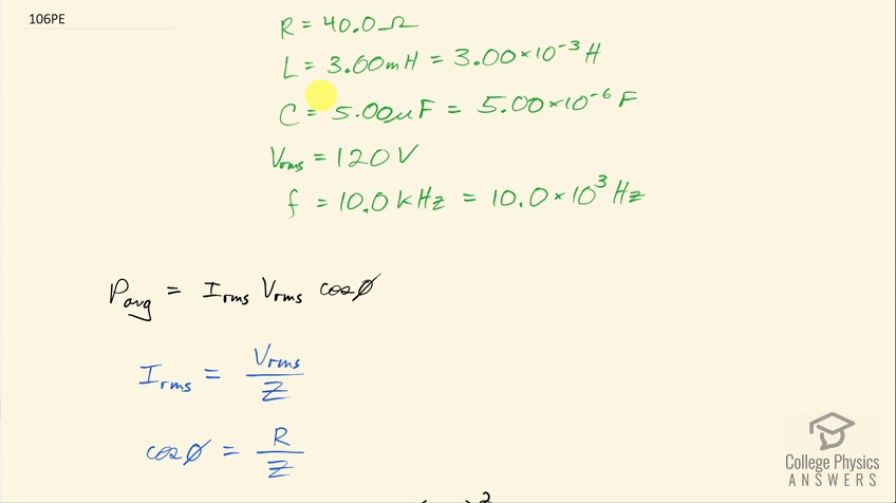 106PE
R = 40.0 Ω
L = 3.00 mH = 3.00×10⁻³ H
C = 5.00 μF = 5.00×10⁻⁶ F
Vrms = 120 V
f = 10.0 kHz = 10.0×10³ Hz
Pavg = Irms Vrms cosø
Irms = Vrms / Z
cosø = R / Z
2
College Physics
ANSWERS